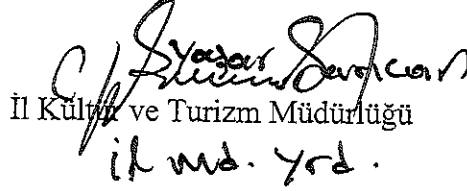 Yaşar
İl Kültür ve Turizm Müdürlüğü
İl Md. Yrd.